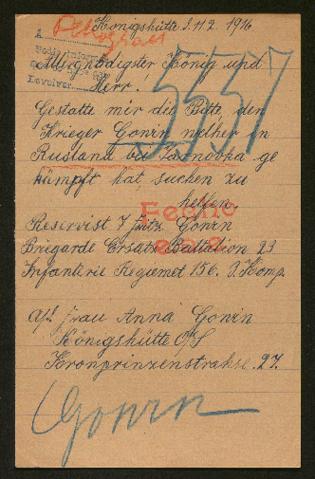 Petrograd
Königshütte d. 11 2. 1916
Allergnädigster König und
Herr!
5557
Gestatte mir die Bitte, den
Krieger Gonrn nelher in
Rusland bei Tarnovka ge
kämpft hat suchen zu
helfen.
Fehlte
Reservist 7 fritz. Gonrn
Brigarde Ersatz Battallion 23
Infanterie Regiemet 156. 3. Komp
Abs. frau Anna Gonrn
Königshütte O/S
Kronprinzenstrahse. 27.
Gonrn